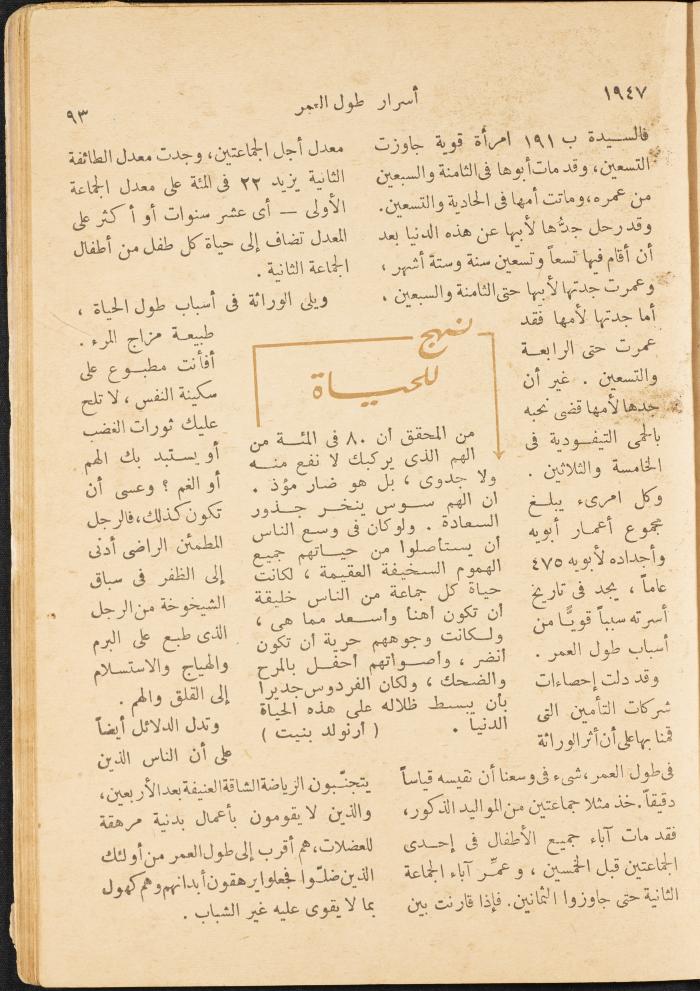 ١٩٤٧
أسرار طول العمر
٩٣
فالسيدة ب ١٩١ امرأة قوية جاوزت
التسعين، وقد مات أبوها فى الثامنة والسبعين
من عمره، وماتت أمها فى الحادية والتسعين.
وقد رحل جدُّها لأبيها عن هذه الدنيا بعد
أن أقام فيها تسعاً وتسعين سنة وستة أشهر ،
وعمرت جدتها لأبيها حتى الثامنة والسبعين .
أما جدتها لأمها فقد
عمرت حتى الرابعة
والتسعين . غير أن
جدها لأمها قضى نحبه
بالحمى التيفودية فى
الخامسة والثلاثين .
وكل امرىء يبلغ
مجموع أعمار أبويه
وأجداده لأبويه ٤٧٥
عاماً ، يجد فى تاريخ
أسرته سبباً قويًّا من
أسباب طول العمر .
وقد دلت إحصاءات
شركات التأمين التى
قمنا بها على أن أثر الوراثة
فى طول العمر، شىء فى وسعنا أن نقيسه قياساً
دقيقاً. خذ مثلا جماعتين من المواليد الذكور،
فقد مات آباء جميع الأطفال فى إحدى
الجماعتين قبل الخمسين ، و عمِّر آباء الجماعة
الثانية حتى جاوزوا الثمانين. فإذا قارنت بين
معدل أجل الجماعتين، وجدت معدل الطائفة
الثانية يزيد ٢٢ فى المئة على معدل الجماعة
الأولى — أى عشر سنوات أو أكثر على
المعدل تضاف إلى حياة كل طفل من أطفال
الجماعة الثانية .
ويلى الوراثة فى أسباب طول الحياة ،
طبيعة مزاج المرء .
أفأنت مطبوع على
سكينة النفس ، لا تلح
عليك ثورات الغضب
أو يستبد بك الهم
أو الغم ؟ وعسى أن
تكون كذلك، فالرجل
المطمئن الراضى أدنى
إلى الظفر فى سباق
الشيخوخة من الرجل
الذى طبع على البرم
والهياج والاستسلام
إلى القلق والهم .
وتدل الدلائل أيضاً
على أن الناس الذين
يتجنّبون الرياضة الشاقة العنيفة بعد الأربعين،
والذين لا يقومون بأعمال بدنية مرهقة
للعضلات، هم أقرب إلى طول العمر من أولئك
الذين ضلّوا فجعلوا يرهقون أبدانهم وهم كهول
بما لا يقوى عليه غير الشباب .
نهج
للحياة
من المحقق أن ٨٠ فى المئة من
الهم الذى يركبك لا نفع منه
ولا جدوى ، بل هو ضار مؤذ .
ان الهم سوس ينخر جذور
السعادة . ولو كان فى وسع الناس
أن يستأصلوا من حياتهم جميع
الهموم السخيفة العقيمة ، لكانت
حياة كل جماعة من الناس خليقة
أن تكون أهنأ وأسعد مما هى ،
ولكانت وجوههم حرية أن تكون
أنضر ، وأصواتهم أحفل بالمرح
والضحك ، ولكان الفردوس جديرا
بأن يبسط ظلاله على هذه الحياة
الدنيا . ( أرنولد بنيت )